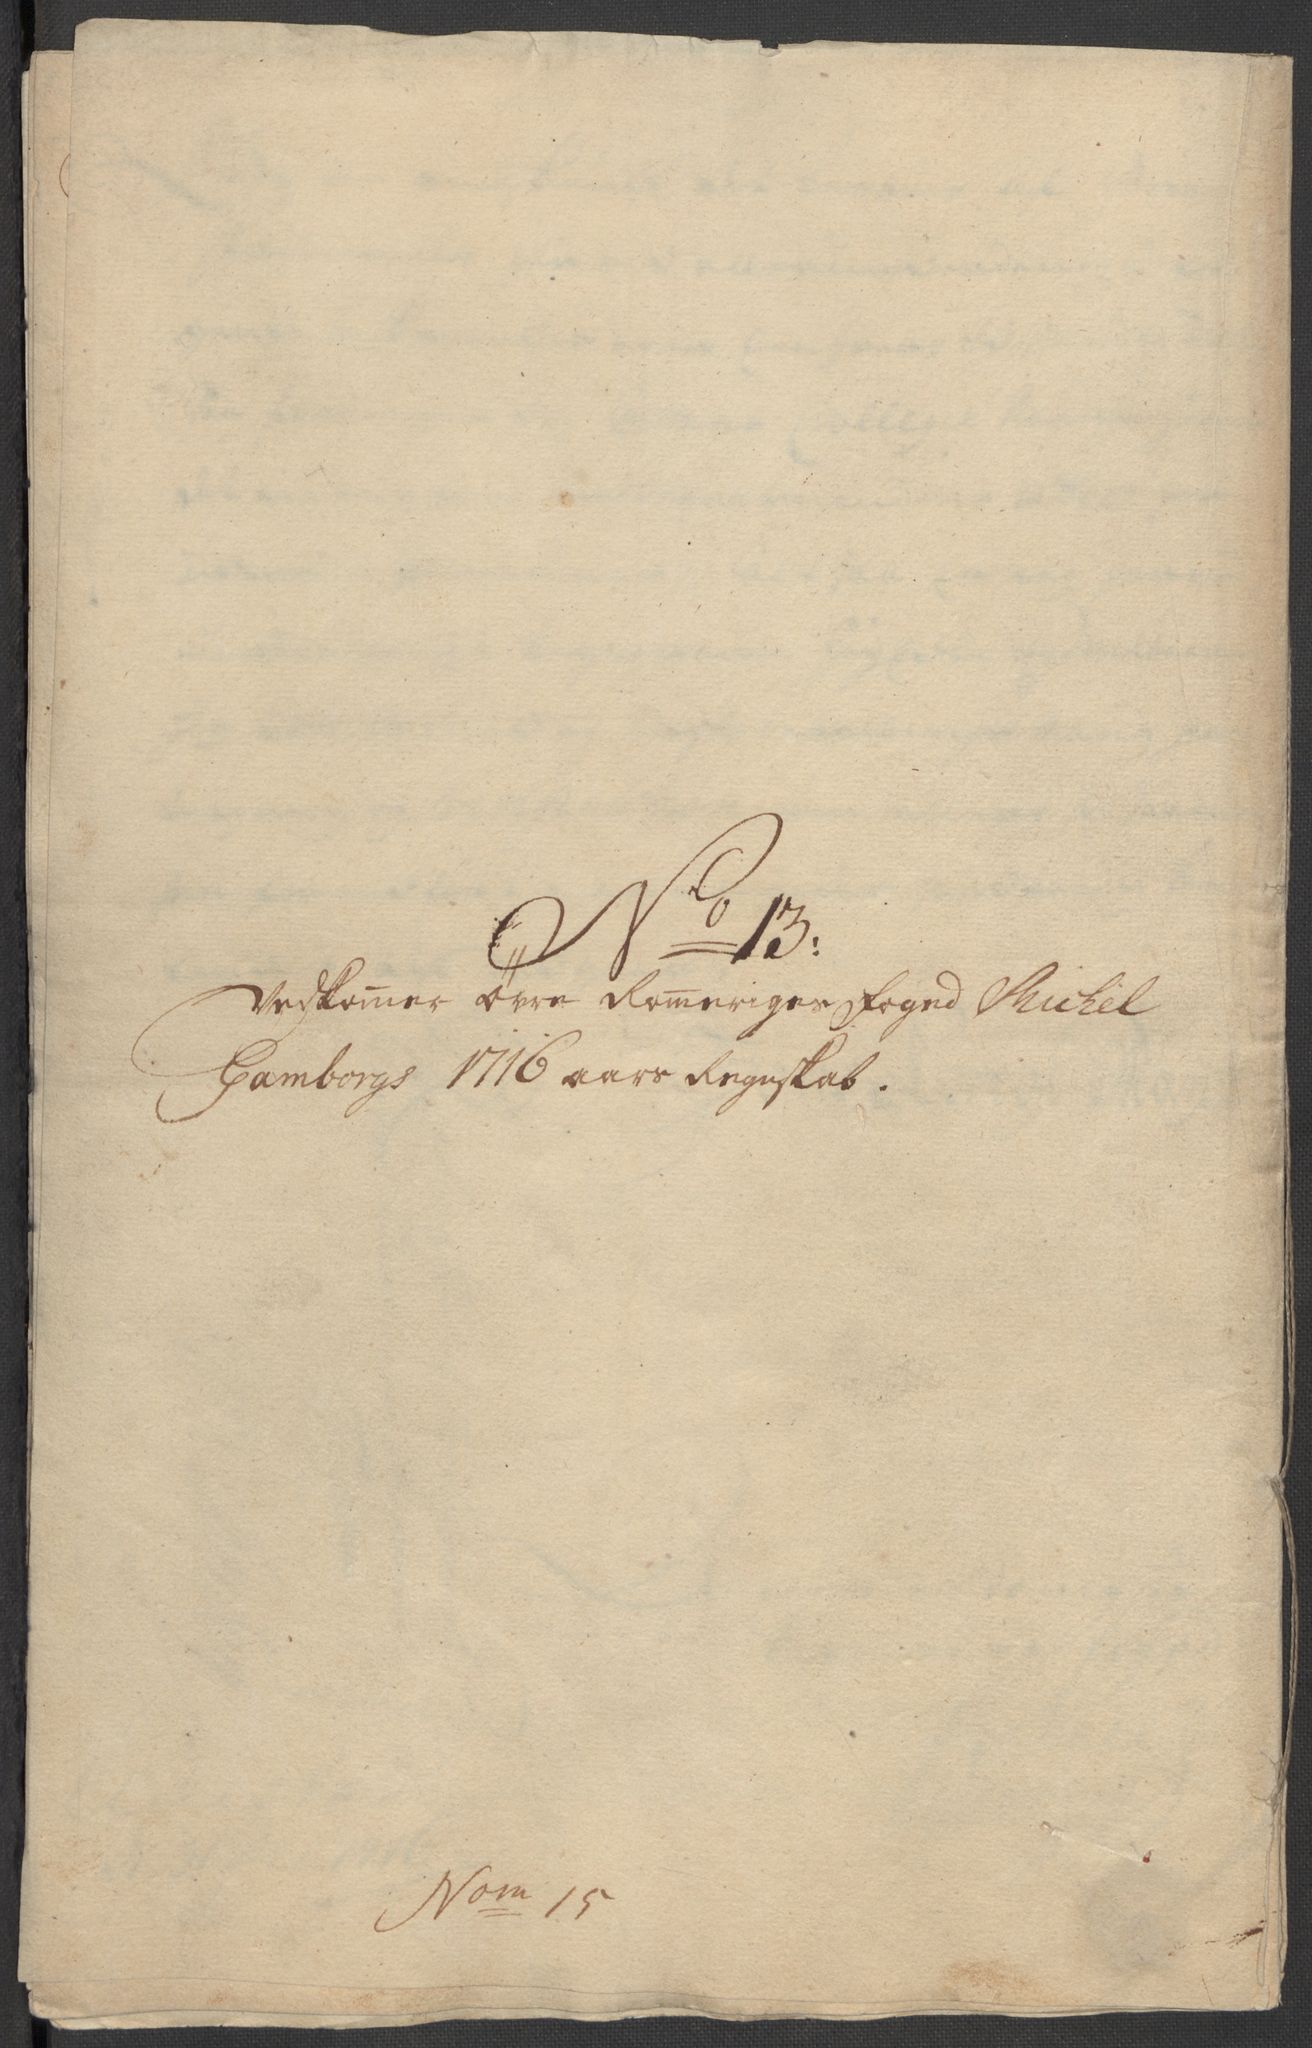 No 13:
Vedkom̄er Øvre Rom̄eriges foged Michel
Gamborgs 1716 aars Regnskab.
Nom 15